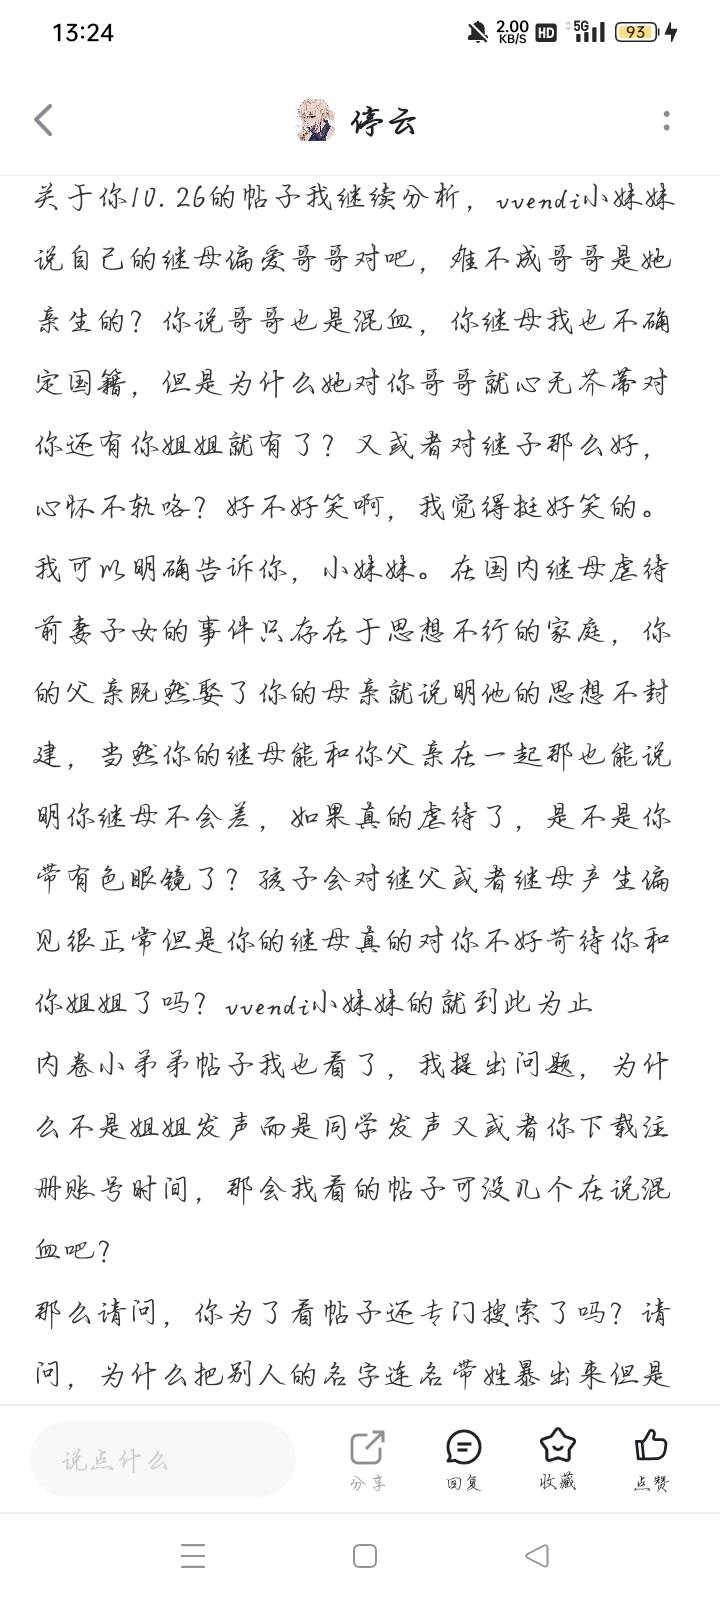 13:24
2.00
KB/S
HD
5G
93
停云
关于你10.26的帖子我继续分析，vvendi小妹妹
说自己的继母偏爱哥哥对吧，难不成哥哥是她
亲生的？你说哥哥也是混血，你继母我也不确
定国籍，但是为什么她对你哥哥就心无芥蒂对
你还有你姐姐就有了？又或者对继子那么好，
心怀不轨咯？好不好笑啊，我觉得挺好笑的。
我可以明确告诉你，小妹妹。在国内继母虐待
前妻子女的事件只存在于思想不行的家庭，你
的父亲既然娶了你的母亲就说明他的思想不封
建，当然你的继母能和你父亲在一起那也能说
明你继母不会差，如果真的虐待了，是不是你
带有色眼镜了？孩子会对继父或者继母产生偏
见很正常但是你的继母真的对你不好苛待你和
你姐姐了吗？vvendi小妹妹的就到此为止
内卷小弟弟帖子我也看了，我提出问题，为什
么不是姐姐发声而是同学发声又或者你下载注
册账号时间，那会我看的帖子可没几个在说混
血吧？
那么请问，你为了看帖子还专门搜索了吗？请
问，为什么把别人的名字连名带姓暴出来但是
说点什么
分享
回复
收藏
点赞